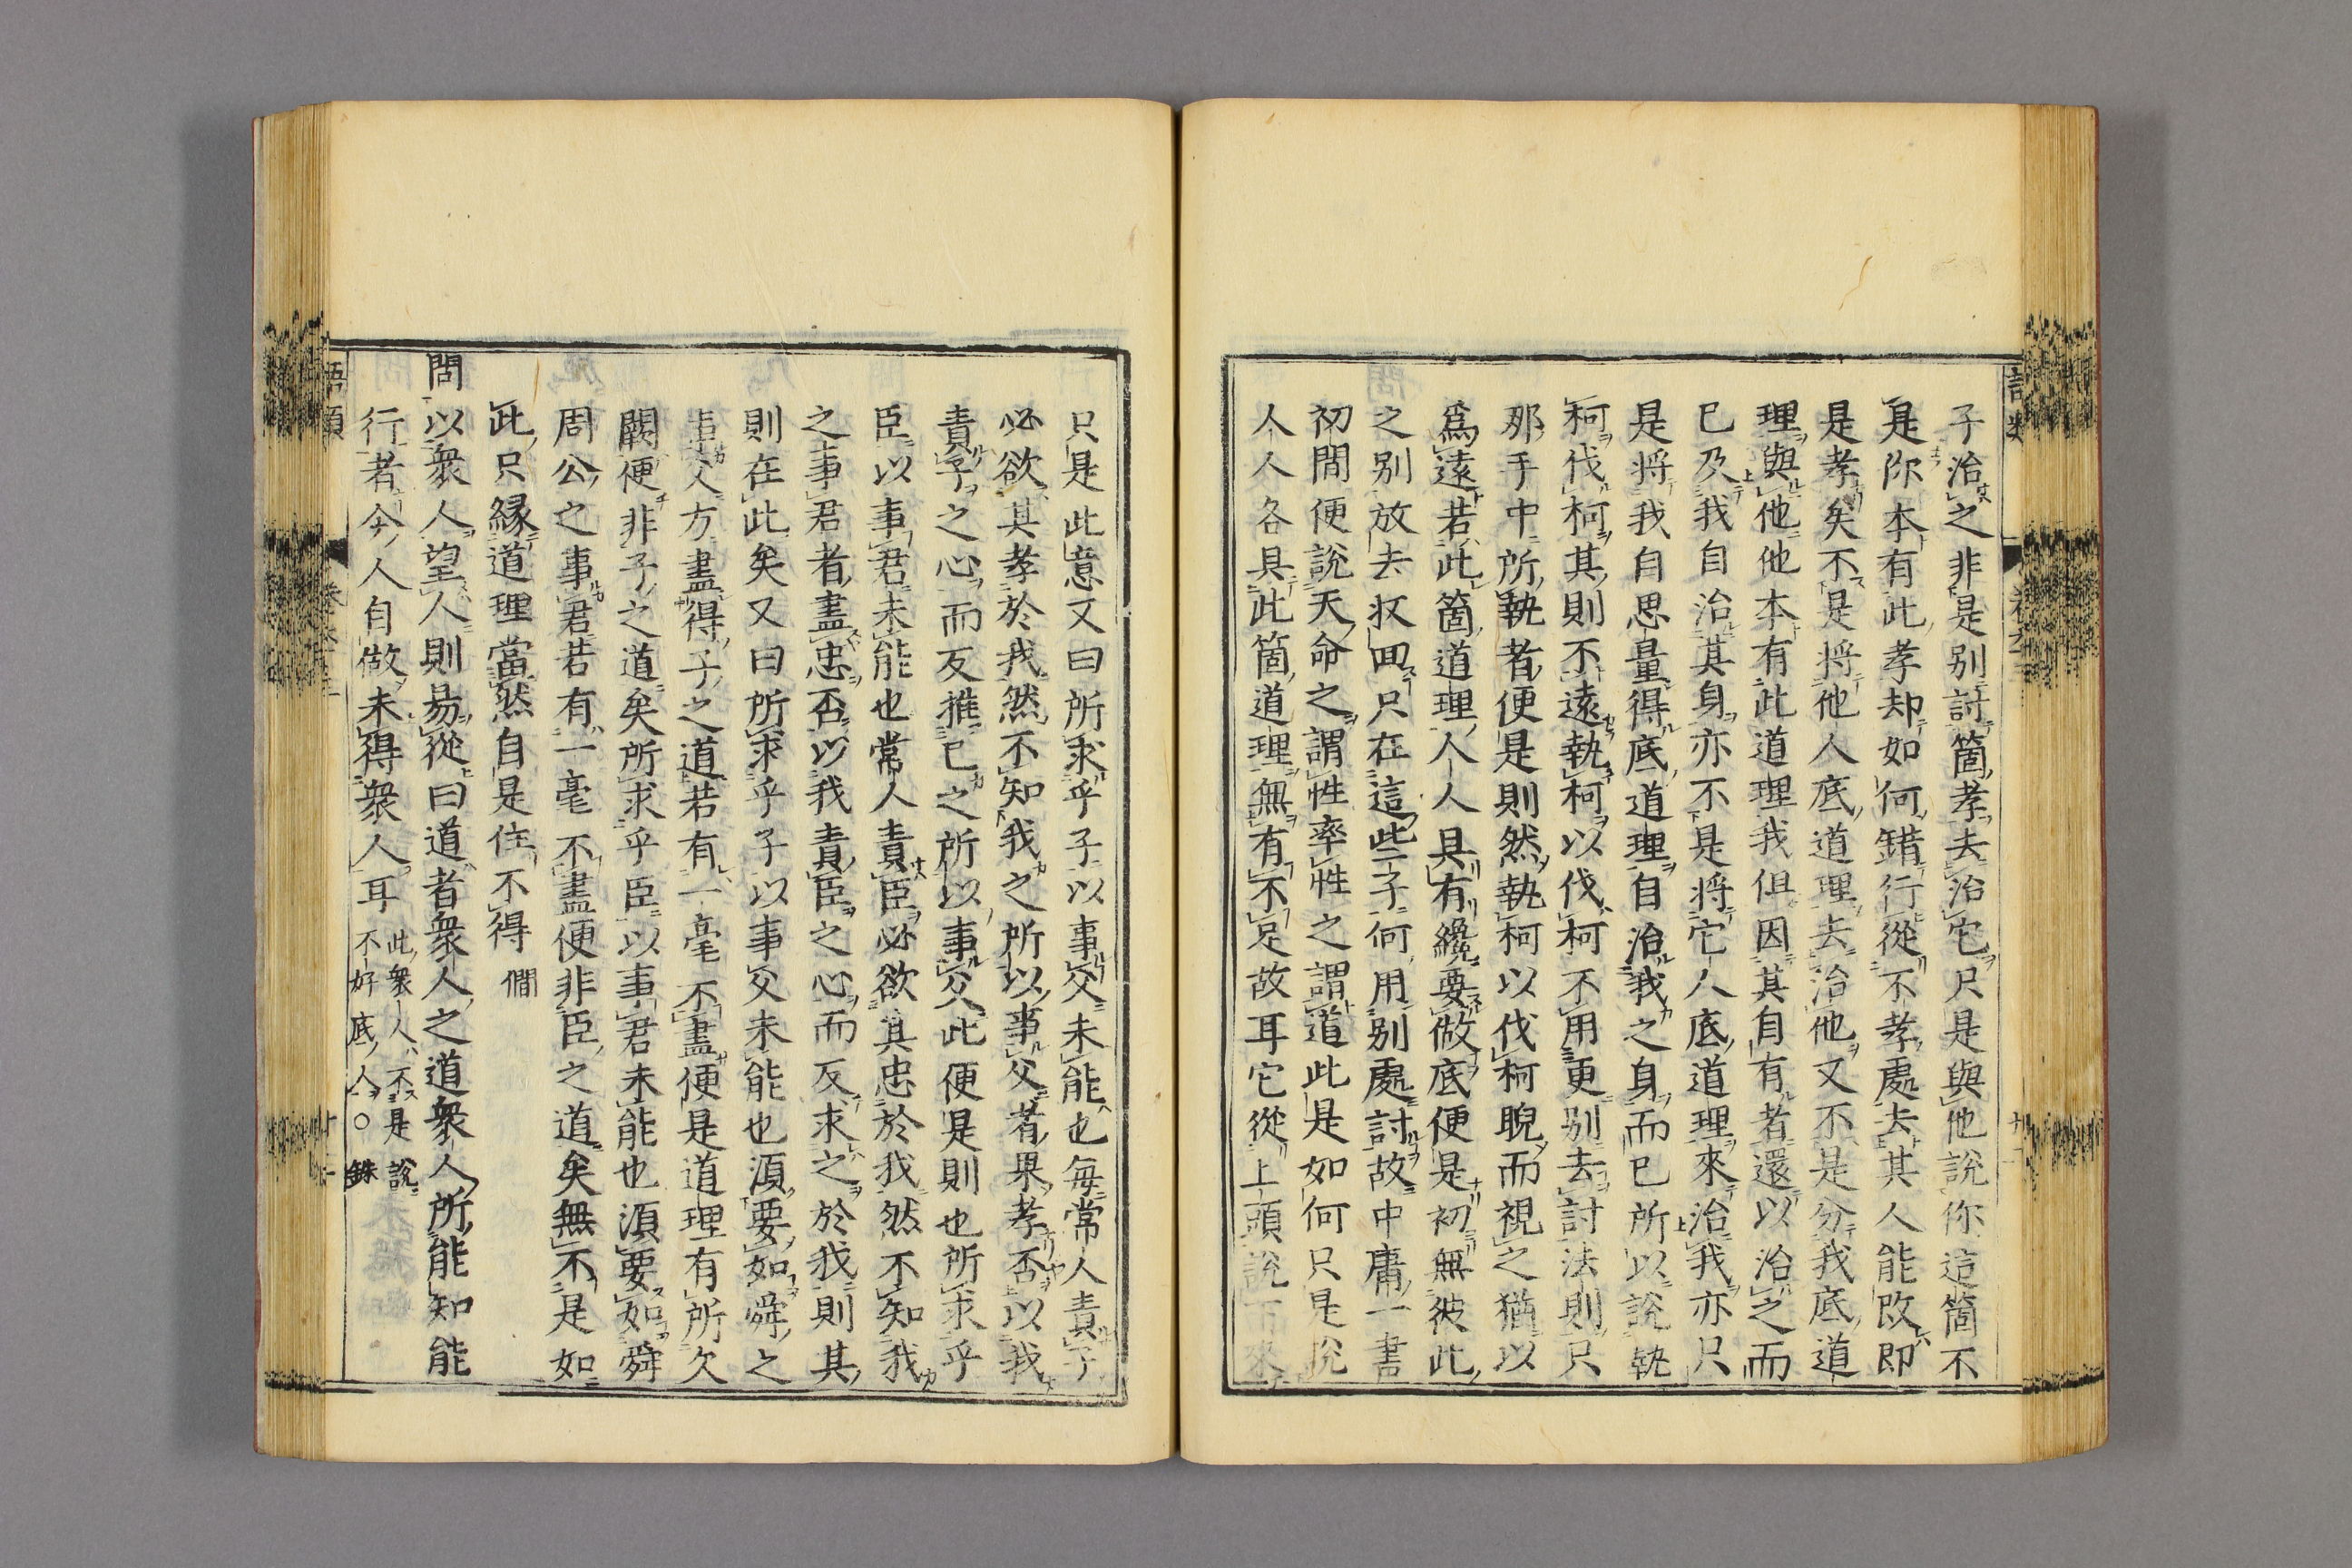 子治之非是别討箇孝去治它只是與他說你這箇不
是你本有此孝却如何錯行從不孝處去其人能改即
是孝矣不是将他人底道理去治他又不是分我底道
理與他他本有此道理我但因其自有者還以治之而
已及我自治其身亦不是将它人底道理來治我亦只
是将我自思量得底道理自治我之身而已所以說執
柯伐柯其則不遠執柯以伐柯不用更别去討法則只
那手中所執者便是則然執柯以伐柯睨而視之猶以
爲遠若此箇道理人人具有纔要做底便是初無彼此
之别放去収囬只在這些子何用别處討故中庸一書
初間便說天命之謂性率性之謂道此是如何只是說
人人各具此箇道理無有不足故耳它從上頭說下來
只是此意又曰所求乎子以事父未能也毎常人責子
必欲其孝於我然不知我之所以事父者果孝否以我
責子之心而反推己之所以事父此便是則也所求乎
臣以事君未能也常人責臣必欲其忠於我然不知我
之事君者盡忠否以我責臣之心而反求之於我則其
則在此矣又曰所求乎子以事父未能也湏要如舜之
事父方盡得子之道若有一毫不盡便是道理有所欠
闕便非子之道矣所求乎臣以事君未能也湏要如舜
周公之事君若有一毫不盡便非臣之道矣無不是如
此只縁道理當然自是住不得 僩
問以衆人望人則易從曰道者衆人之道衆人所能知能
行者今人自做未得衆人耳 此衆人不是說
不好底人○ 銖
語類